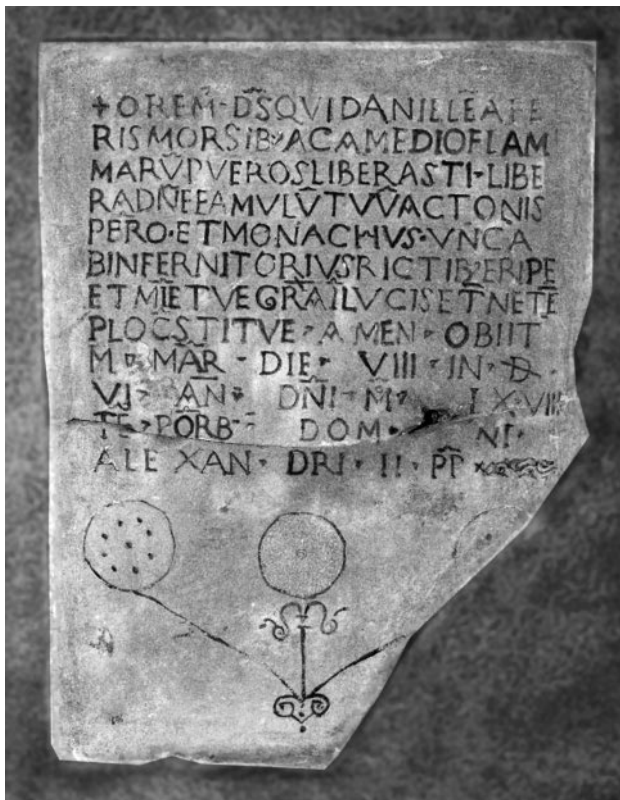 + OREM̄ · D̄S̄ QVI DANILLĒA FE
RIS MORSIB; AC A MEDIO FLAM
MARV̄ PVEROS LIBERASTI · LIBE
RA D̄N̄E FAMVLV̄ TVV̄ ACTONIS
PERO · ET MONACHVS · VNCA
B INFERNI TORIVS RICTIB; ERIPE
ET M̄IE TVE GR̄A ĪL LVCIS ET̄NE TĒ
PLO CSTITVE · AMEN · OBIIT
M · MAR̄ · DIE · VIII · IN · D ·
VI · AN̄ · DN̄I · M̄ · IX · VIII
TĒ · PŌRB · DOM · NI ·
ALEXAN · DRI · II · P̄P̄